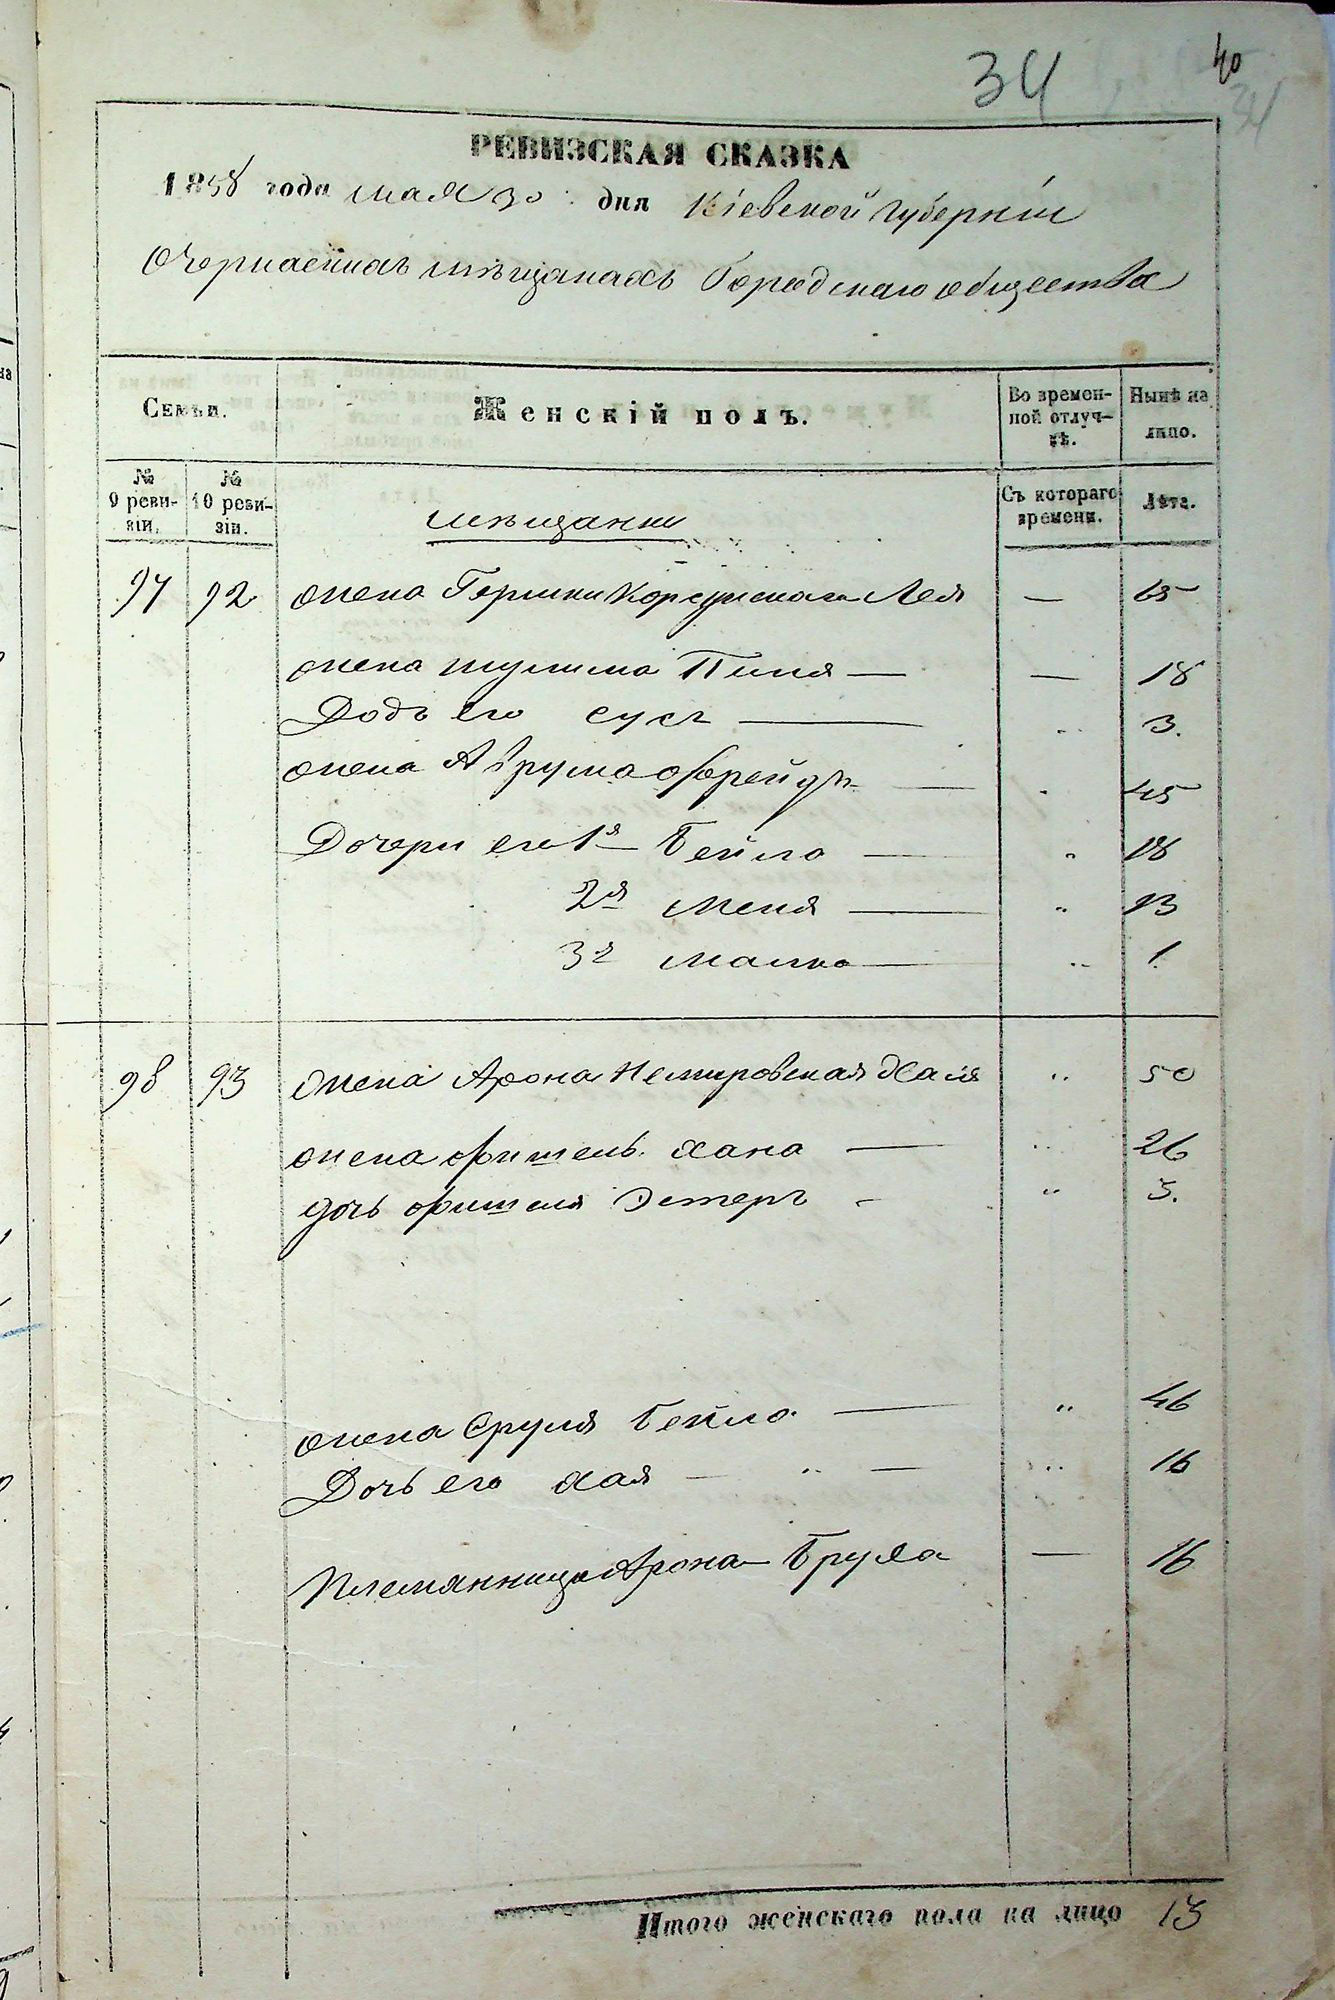 34
40
34
РЕВИЗСКАЯ СКАЗКА
1858 года мая 30 дня Кіевской Губерніи
О Черкаскихъ мѣщанахъ Городскаго общества
Семьи.
Женскій полъ.
Во времен-
ной отлуч-
кѣ.
Нынѣ на
лицо.
№
9 реви-
зіи.
№
10 реви-
зіи.
мѣщанки
Съ котораго
времени.
Лѣта.
97 92 жена Гершки Корсунскаго Лея — 65
жена Шулима Пиня — — 18
Дочь его Суся — „ 3.
жена Аврума Фрейда — „ 45
Дочери его 1я Бейла — „ 18
2я Меня — „ 13
3я Малка — „ 1.
98 93 жена Арона Немировская Хая „ 50
жена Фишеля Хана — „ 26
дочь Фишеля Эстеръ - „ 3.
жена Сруля Бейла — „ 46
Дочь его Хая — „ — „ 16
Племянница Арона Бруха — 16
Итого женскаго пола на лицо 13